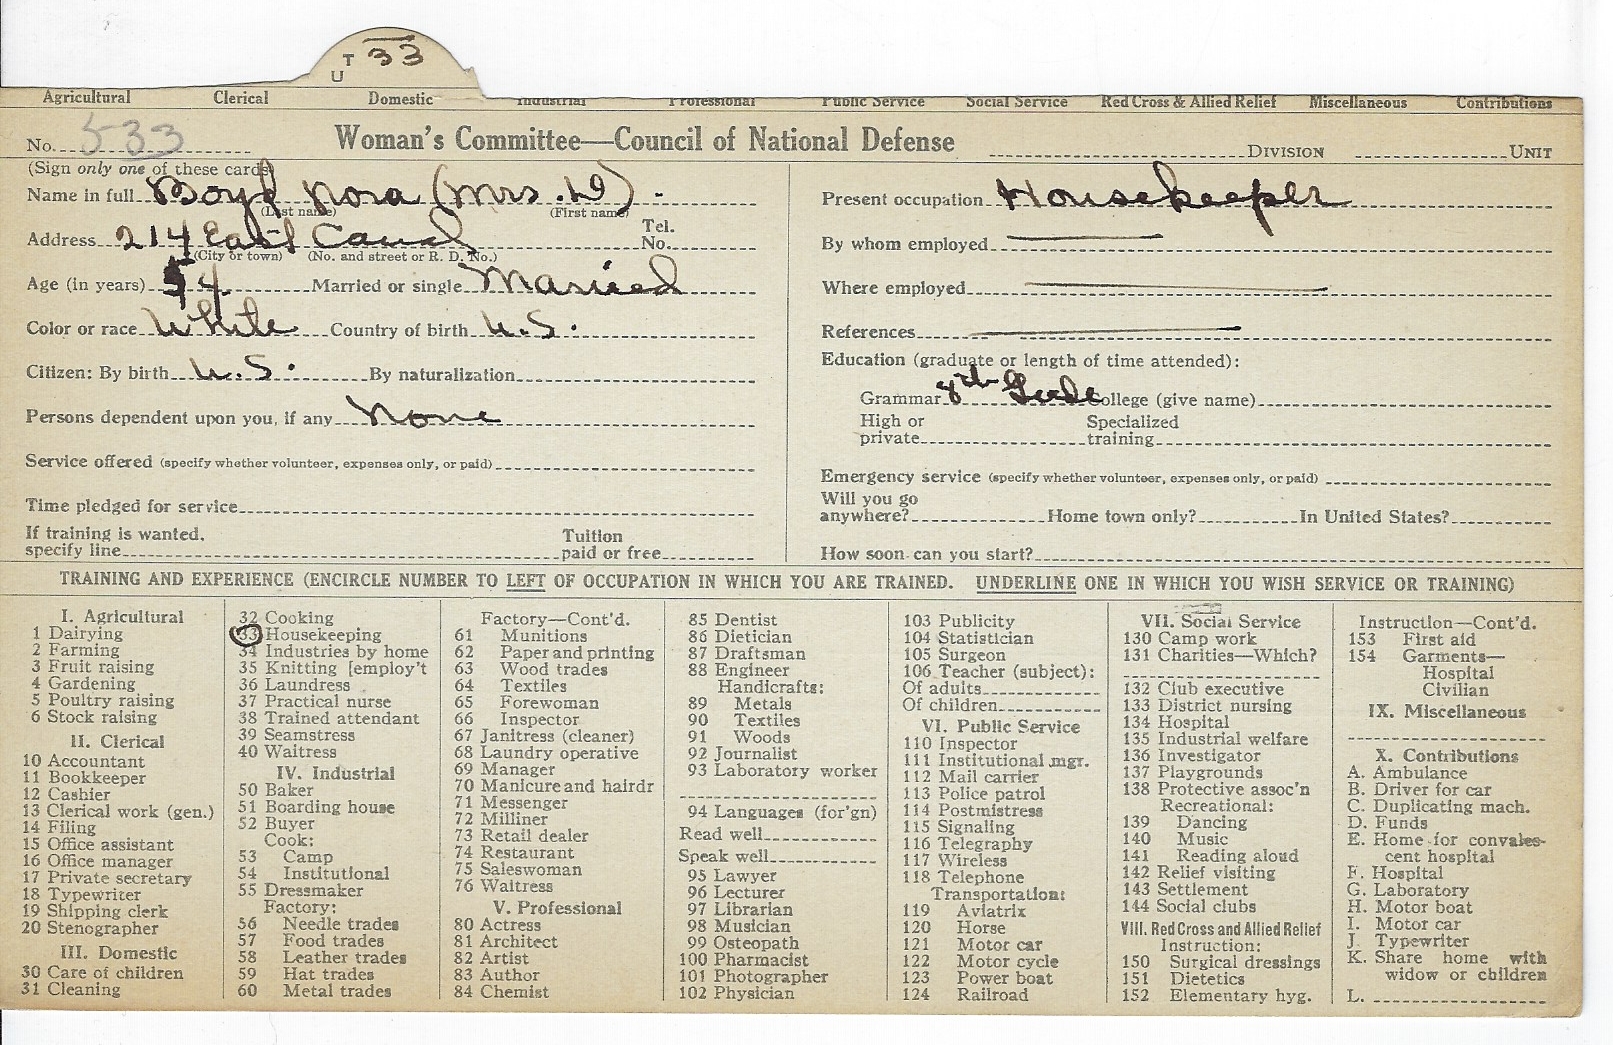 T 33
U
Agricultural Clerical Domestic Industrial Professional Public Service Social Service Red Cross & Allied Relief Miscellaneous Contributions
No. 533 Woman's Committee—Council of National Defense DIVISION UNIT
(Sign only one of these cards)
Name in full Boyd Nora (Mrs. D)
(Last name) (First name)
Address 214 East Canal Tel. No.
(City or town) (No. and street or R. D. No.)
Age (in years) 54 Married or single Married
Color or race White Country of birth U.S.
Citizen: By birth U.S. By naturalization
Persons dependent upon you, if any None
Service offered (specify whether volunteer, expenses only, or paid)
Time pledged for service
If training is wanted, specify line Tuition paid or free
Present occupation Housekeeper
By whom employed
Where employed
References
Education (graduate or length of time attended):
Grammar 8th Grade College (give name)
High or private Specialized training
Emergency service (specify whether volunteer, expenses only, or paid)
Will you go anywhere? Home town only? In United States?
How soon can you start?
TRAINING AND EXPERIENCE (ENCIRCLE NUMBER TO LEFT OF OCCUPATION IN WHICH YOU ARE TRAINED. UNDERLINE ONE IN WHICH YOU WISH SERVICE OR TRAINING)
I. Agricultural
1 Dairying
2 Farming
3 Fruit raising
4 Gardening
5 Poultry raising
6 Stock raising
II. Clerical
10 Accountant
11 Bookkeeper
12 Cashier
13 Clerical work (gen.)
14 Filing
15 Office assistant
16 Office manager
17 Private secretary
18 Typewriter
19 Shipping clerk
20 Stenographer
III. Domestic
30 Care of children
31 Cleaning
32 Cooking
33 Housekeeping
34 Industries by home
35 Knitting [employ't
36 Laundress
37 Practical nurse
38 Trained attendant
39 Seamstress
40 Waitress
IV. Industrial
50 Baker
51 Boarding house
52 Buyer
Cook:
53 Camp
54 Institutional
55 Dressmaker
Factory:
56 Needle trades
57 Food trades
58 Leather trades
59 Hat trades
60 Metal trades
Factory—Cont'd.
61 Munitions
62 Paper and printing
63 Wood trades
64 Textiles
65 Forewoman
66 Inspector
67 Janitress (cleaner)
68 Laundry operative
69 Manager
70 Manicure and hairdr
71 Messenger
72 Milliner
73 Retail dealer
74 Restaurant
75 Saleswoman
76 Waitress
V. Professional
80 Actress
81 Architect
82 Artist
83 Author
84 Chemist
85 Dentist
86 Dietician
87 Draftsman
88 Engineer
Handicrafts:
89 Metals
90 Textiles
91 Woods
92 Journalist
93 Laboratory worker
94 Languages (for'gn)
Read well
Speak well
95 Lawyer
96 Lecturer
97 Librarian
98 Musician
99 Osteopath
100 Pharmacist
101 Photographer
102 Physician
103 Publicity
104 Statistician
105 Surgeon
106 Teacher (subject):
Of adults
Of children
VI. Public Service
110 Inspector
111 Institutional mgr.
112 Mail carrier
113 Police patrol
114 Postmistress
115 Signaling
116 Telegraphy
117 Wireless
118 Telephone
Transportation:
119 Aviatrix
120 Horse
121 Motor car
122 Motor cycle
123 Power boat
124 Railroad
VII. Social Service
130 Camp work
131 Charities—Which?
132 Club executive
133 District nursing
134 Hospital
135 Industrial welfare
136 Investigator
137 Playgrounds
138 Protective assoc'n
Recreational:
139 Dancing
140 Music
141 Reading aloud
142 Relief visiting
143 Settlement
144 Social clubs
VIII. Red Cross and Allied Relief
Instruction:
150 Surgical dressings
151 Dietetics
152 Elementary hyg.
Instruction—Cont'd.
153 First aid
154 Garments—
Hospital
Civilian
IX. Miscellaneous
X. Contributions
A. Ambulance
B. Driver for car
C. Duplicating mach.
D. Funds
E. Home for convales-
cent hospital
F. Hospital
G. Laboratory
H. Motor boat
I. Motor car
J. Typewriter
K. Share home with
widow or children
L.